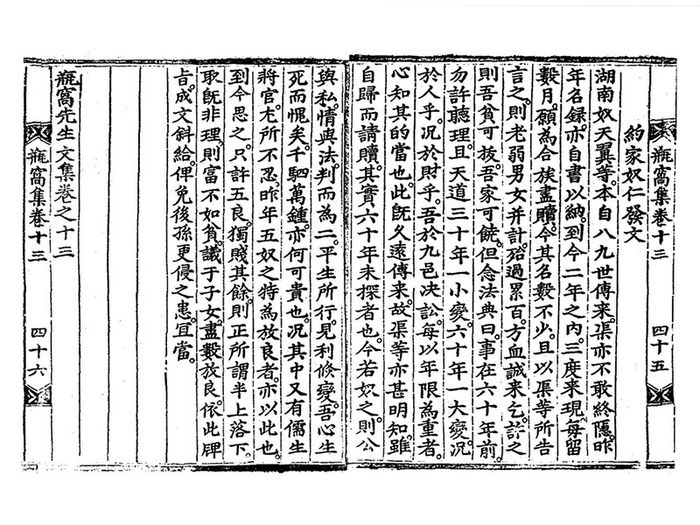 瓶窩集卷十三 四十五
約家奴仁發文
湖南奴天翼等。本自八九世傳来。渠亦不敢終隱。昨
年名録。亦自書以納。到今二年之內。三度来現。每留
數月。願為合族盡贖。今其名數不少。且以渠等所告
言之。則老弱男女并計。殆過累百。方血誠来乞。許之
則吾貧可拔。吾家可饒。但念法典曰。事在六十年前
勿許聽理。且天道三十年一小變。六十年一大變。况
於人乎。况於財乎。吾於九邑决訟。每以年限為重者。
心知其的當也。此旣久遠傳来。故渠等亦甚明知。雖
自歸而請贖。其實六十年未探者也。今若奴之。則公
與私。情與法。判而為二。平生所行。見利倏變。吾心生
死而愧矣。千駟萬鍾。亦何可貴也。况其中又有儒生
將官。尤所不忍。昨年五奴之特為放良者。亦以此也。
到今思之。只許五良。獨賤其餘。則正所謂半上落下。
取旣非理。則富不如貧。議于子女。盡數放良。依此牌
旨。成文斜給。俾免後孫更侵之患。宜當。
瓶窩先生文集卷之十三
瓶窩集卷十三 四十六